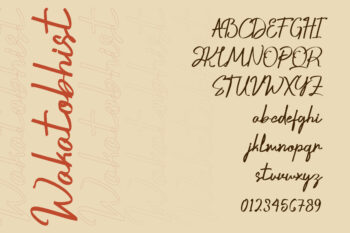 Wakatobhist
ABCDEFGHI
JKLMNOPQR
STUVWXYZ
abcdefghi
jklmnopqr
stuvwxyz
0123456789